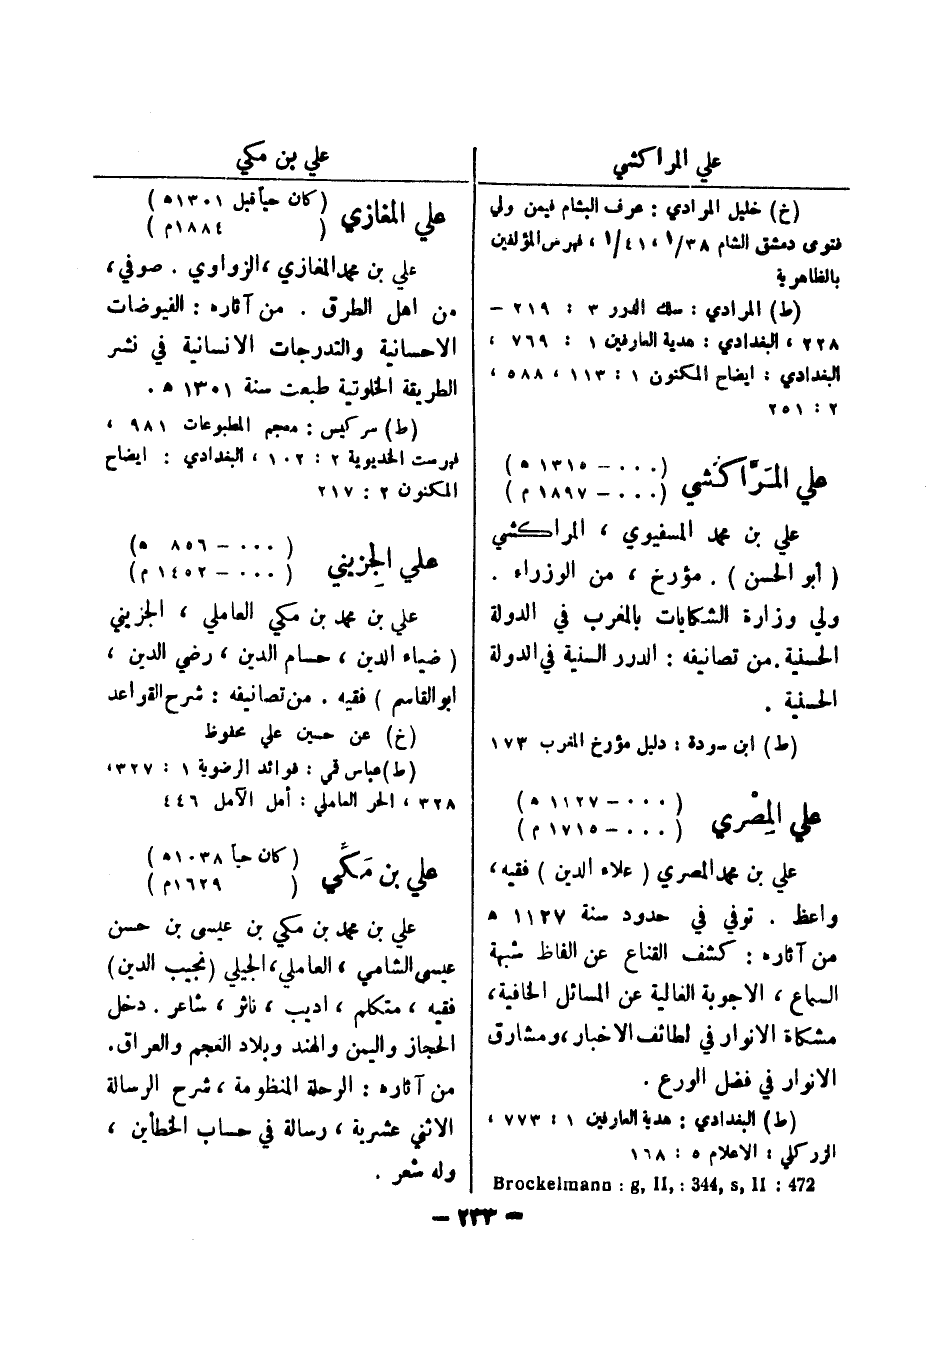 علي المراكشي
(خ) خليل المرادي : عرف البشام فيمن ولي
فتوى دمشق الشام ٣٨/١، ٤١/١ ، فهرس المؤلفين
بالظاهرية
(ط) المرادي : سلك الدرر ٣ : ٢١٩ –
٢٢٨ ، البغدادي : هدية العارفين ١ : ٧٦٩ ،
البغدادي : ايضاح المكنون ١ : ١١٣ ، ٥٨٨ ،
٢ : ٢٥١
علي المَرَّاكشي (٠٠٠ – ١٣١٥ ه)
(٠٠٠ – ١٨٩٧ م)
علي بن محمد المسفيوي ، المراكشي
( أبو الحسن ) . مؤرخ ، من الوزراء .
ولي وزارة الشكايات بالمغرب في الدولة
الحسنية . من تصانيفه : الدرر السنية في الدولة
الحسنية .
(ط) ابن سودة : دليل مؤرخ المغرب ١٧٣
علي المِصْري (٠٠٠ – ١١٢٧ ه)
(٠٠٠ – ١٧١٥ م)
علي بن محمد المصري ( علاء الدين ) فقيه ،
واعظ . توفي في حدود سنة ١١٢٧ ه
من آثاره : كشف القناع عن الفاظ شبهة
السماع ، الاجوبة الغالية عن المسائل الخافية ،
مشكاة الانوار في لطائف الاخبار ، ومشارق
الانوار في فضل الورع .
(ط) البغدادي : هدية العارفين ١ : ٧٧٣ ،
الزركلي : الاعلام ٥ : ١٦٨
Brockelmann : g, II, : 344, s, II : 472
علي بن مكي
علي المغازي (كان حياً قبل ١٣٠١ ه)
(١٨٨٤ م)
علي بن محمد المغازي ، الزواوي . صوفي ،
من اهل الطرق . من آثاره : الفيوضات
الاحسانية والتدرجات الانسانية في نشر
الطريقة الخلوتية طبعت سنة ١٣٠١ ه .
(ط) سركيس : معجم المطبوعات ٩٨١ ،
فهرست الخديوية ٢ : ١٠٢ ، البغدادي : ايضاح
المكنون ٢ : ٢١٧
علي الجِزيني (٠٠٠ – ٨٥٦ ه)
(٠٠٠ – ١٤٥٢ م)
علي بن محمد بن مكي العاملي ، الجزيني
( ضياء الدين ، حسام الدين ، رضي الدين ،
ابو القاسم ) فقيه . من تصانيفه : شرح القواعد
(خ) عن حسين علي محفوظ
(ط) عباس قمي : فوائد الرضوية ١ : ٣٢٧،
٣٢٨ ، الحر العاملي : أمل الآمل ٤٤٦
علي بن مَكّي (كان حياً ١٠٣٨ ه)
(١٦٢٩ م)
علي بن محمد بن مكي بن عيسى بن حسن
عيسى الشامي ، العاملي ، الجيلي (نجيب الدين)
فقيه ، متكلم ، اديب ، ناثر ، شاعر . دخل
الحجاز واليمن والهند وبلاد العجم والعراق .
من آثاره : الرحلة المنظومة ، شرح الرسالة
الاثني عشرية ، رسالة في حساب الخطأين ،
وله شعر .
– ٢٣٣ –